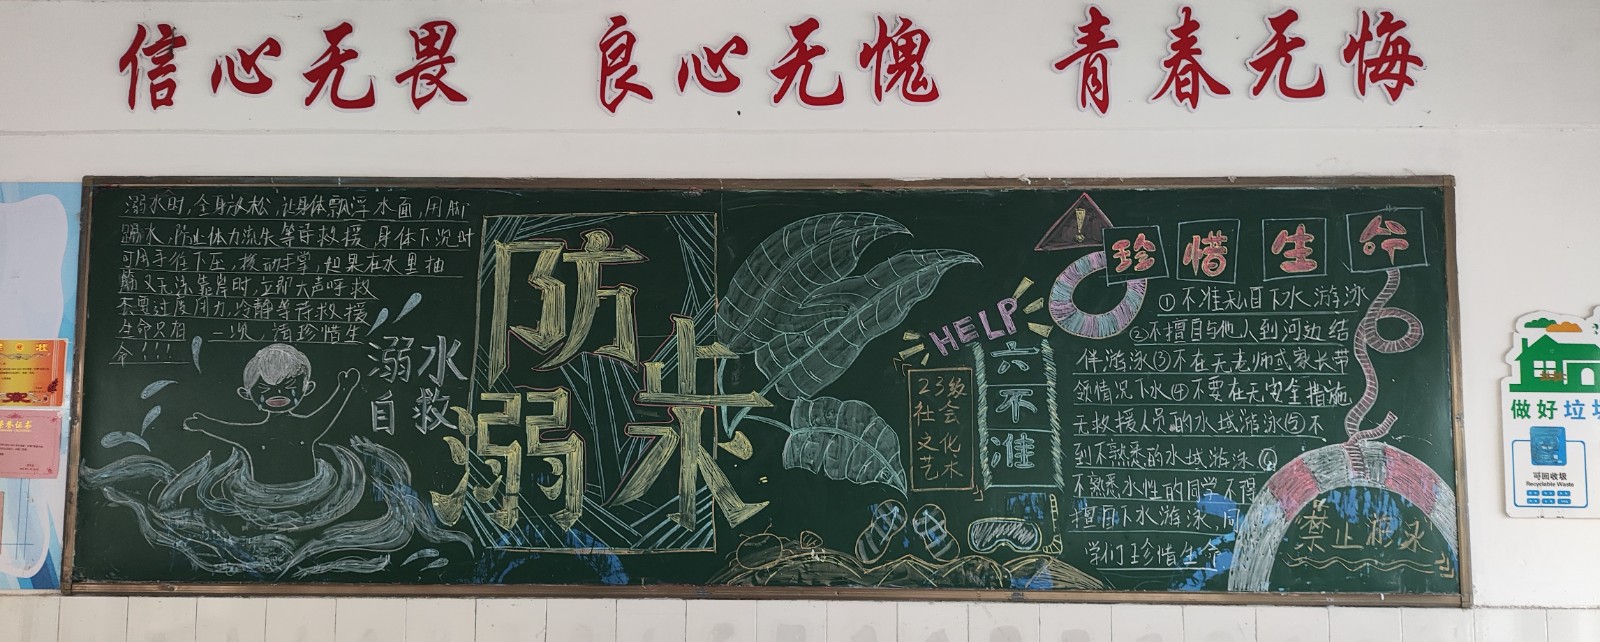 信心无畏 良心无愧 青春无悔
溺水时,全身放松,让身体飘浮水面,用脚
踢水,防止体力流失等待救援,身体下沉时
可用手往下压,拨动手掌,如果在水里抽
筋又无法靠岸时,立即大声呼救
不要过度用力,冷静等待救援
生命只有一次,请珍惜生
命!!!
溺水
自救
防
溺水
HELP
六不准
23级
社会
文化
艺术
!
珍惜生命
①不准私自下水游泳
②不擅自与他人到河边结
伴游泳③不在无老师或家长带
领情况下水④不要在无安全措施,
无救援人员的水域游泳⑤不
到不熟悉的水域游泳⑥
不熟悉水性的同学不得
擅自下水游泳,同
学们珍惜生命
禁止游泳
做好垃圾
可回收圾
Recyclable Waste